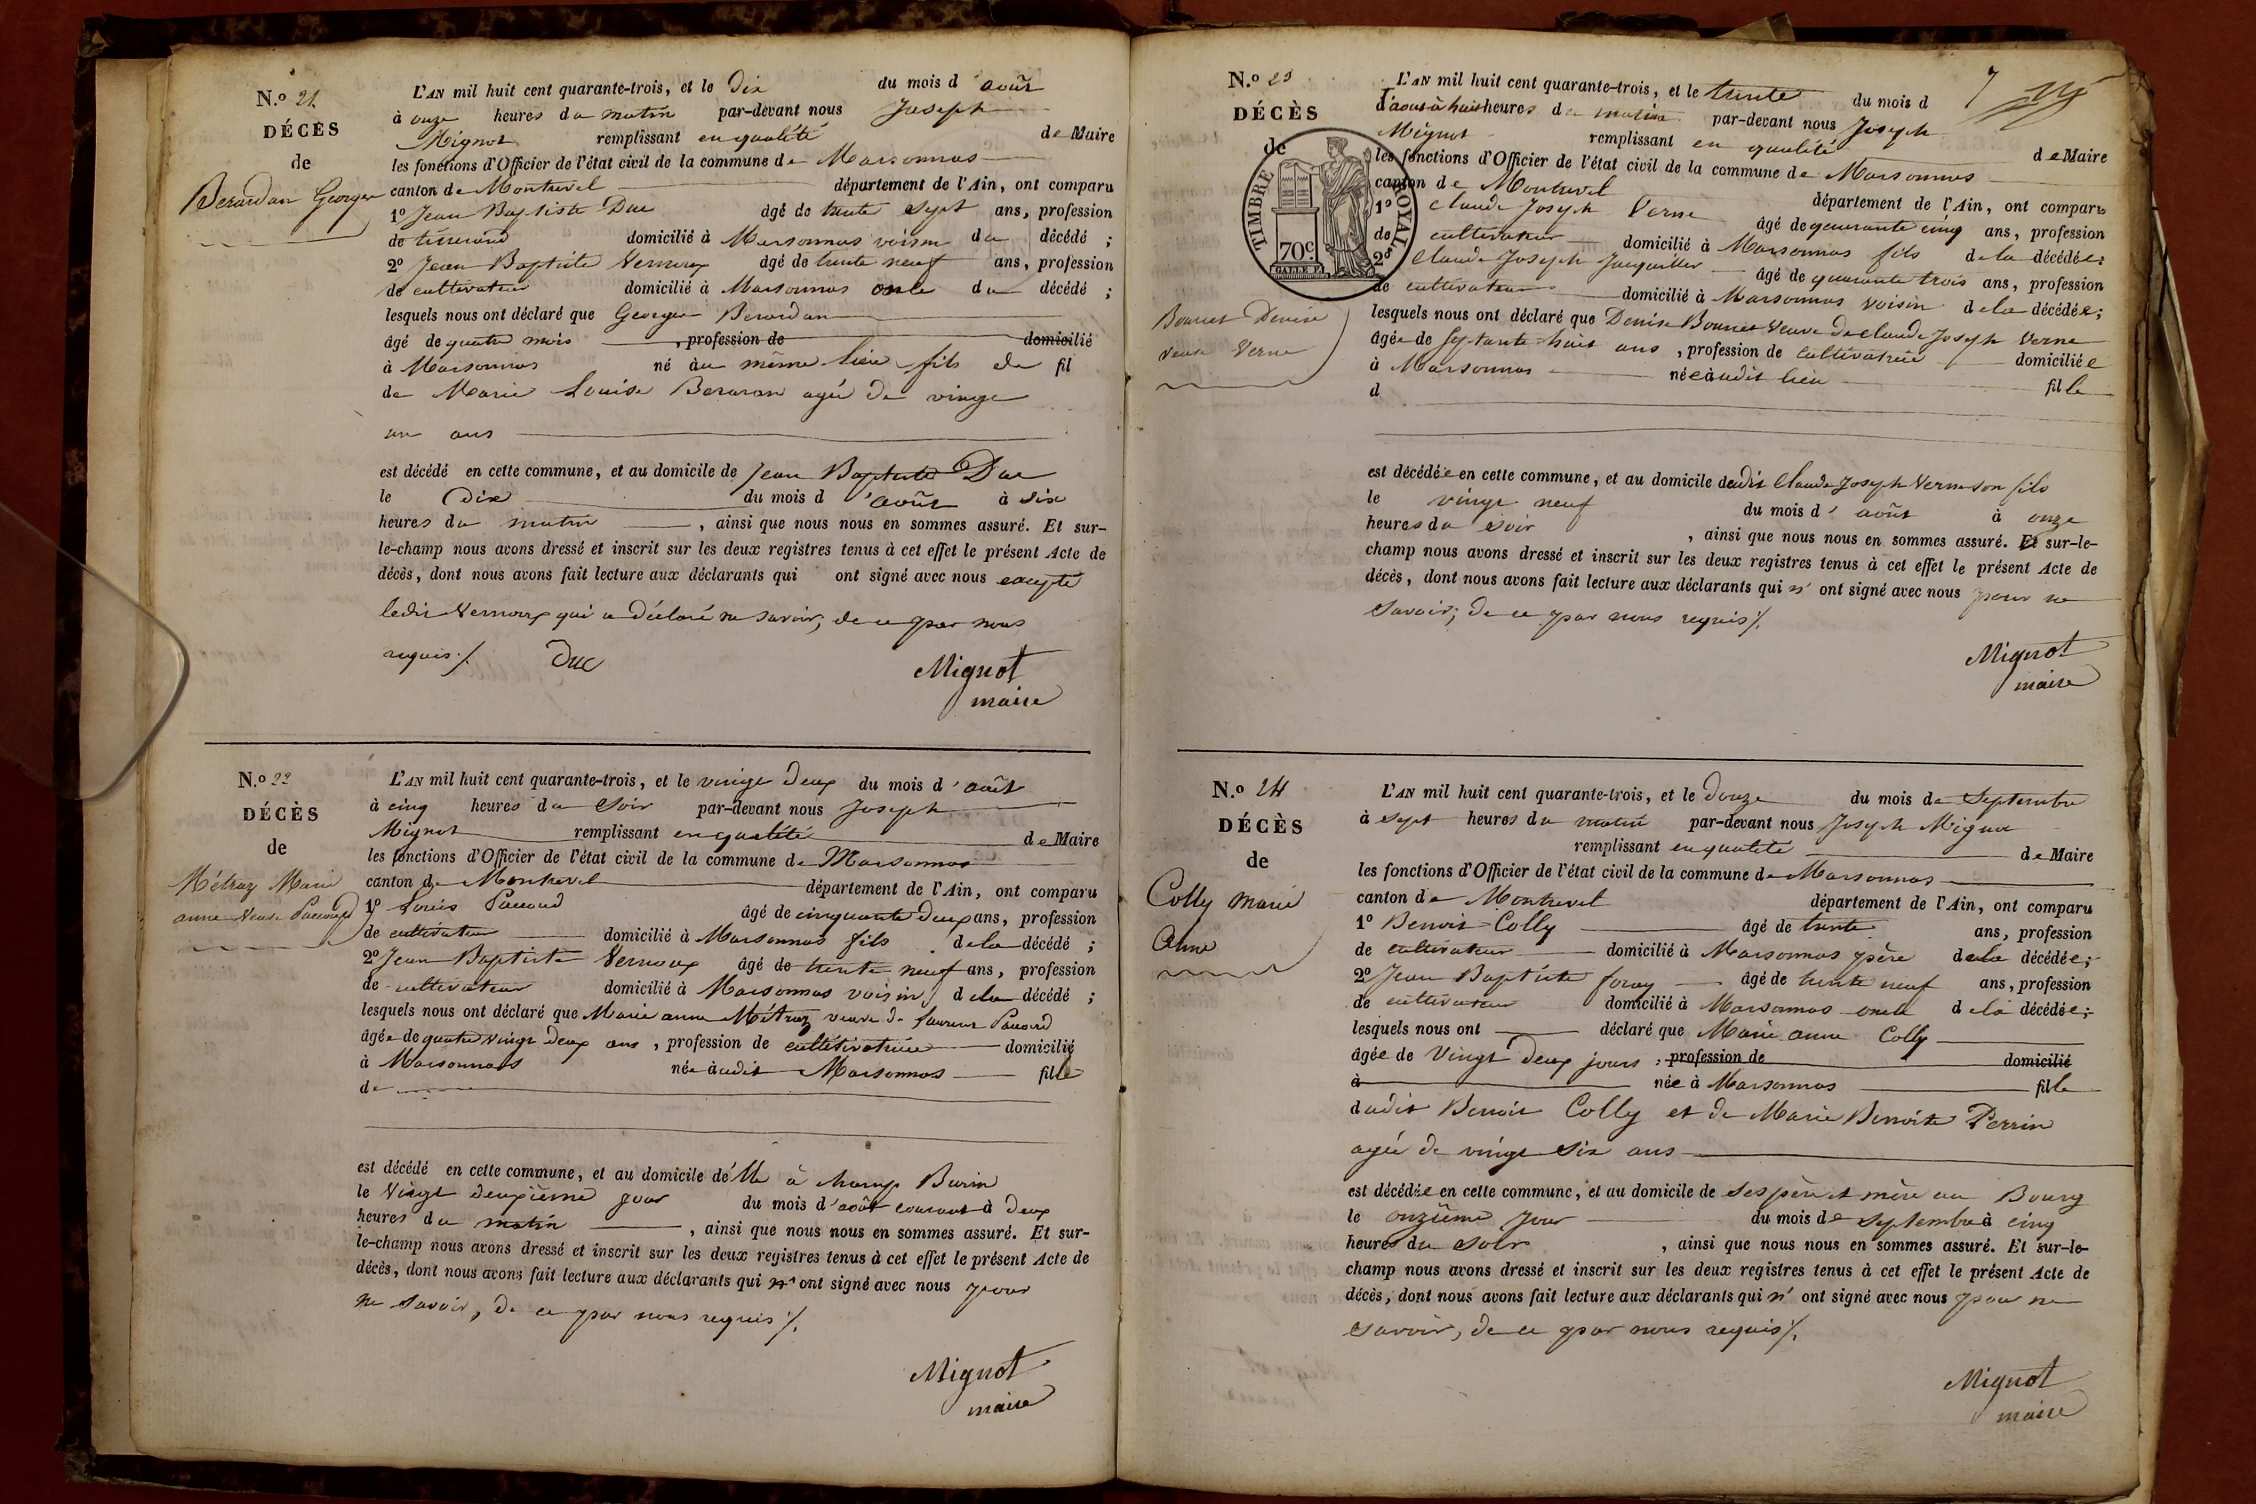 N.º 21.
DÉCÈS
de
Berardan George
L'AN mil huit cent quarante-trois, et le Dix du mois d'août
à onze heures du matin par-devant nous Joseph
Mignot remplissant en qualité de Maire
les fonctions d'Officier de l'état civil de la commune de Marsonnas
canton de Montrevel département de l'Ain, ont comparu
1º Jean Baptiste Duc âgé de trente sept ans, profession
de tisserand domicilié à Marsonnas voisin du décédé ;
2º Jean Baptiste Vernoux âgé de trente neuf ans, profession
de cultivateur domicilié à Marsonnas oncle du décédé ;
lesquels nous ont déclaré que George Berardan
âgé de quatre mois , profession de domicilié
à Marsonnas né au même lieu fils de fil
de Marie Louise Berardan agée de vingt
un ans
est décédé en cette commune, et au domicile de Jean Baptiste Duc
le Dix du mois d'août à six
heures du matin , ainsi que nous nous en sommes assuré. Et sur-
le-champ nous avons dressé et inscrit sur les deux registres tenus à cet effet le présent Acte de
décès, dont nous avons fait lecture aux déclarants qui ont signé avec nous excepté
ledit Vernoux qui a déclaré ne savoir, de ce par nous
requis /. Duc Mignot
maire
N.º 22
DÉCÈS
de
Métraz Marie
anne Veuve Pauoud
L'AN mil huit cent quarante-trois, et le vingt deux du mois d'août
à cinq heures du soir par-devant nous Joseph
Mignot remplissant en qualité de Maire
les fonctions d'Officier de l'état civil de la commune de Marsonnas
canton de Montrevel département de l'Ain, ont comparu
1º Louis Pauoud âgé de cinquante deux ans, profession
de cultivateur domicilié à Marsonnas fils de la décédé ;
2º Jean Baptiste Vernoux âgé de trente neuf ans, profession
de cultivateur domicilié à Marsonnas voisin de la décédé ;
lesquels nous ont déclaré que Marie anne Métraz veuve de Laurent Pauoud
âgée de quatre vingt deux ans , profession de cultivatrice domicilié
à Marsonnas née audit Marsonnas fille
de
est décédé en cette commune, et au domicile d'elle à champ Burin
le Vingt deuxième jour du mois d'août courant à deux
heures du matin , ainsi que nous nous en sommes assuré. Et sur-
le-champ nous avons dressé et inscrit sur les deux registres tenus à cet effet le présent Acte de
décès, dont nous avons fait lecture aux déclarants qui n'ont signé avec nous pour
ne savoir, de ce par nous requis /.
Mignot
maire
7
N.º 23
DÉCÈS
de
TIMBRE ROYAL
70c.
Bourcet Denise
veuve Verne
L'AN mil huit cent quarante-trois, et le trente du mois d
d'aout à huit heures du matin par-devant nous Joseph
Mignot remplissant en qualité de Maire
les fonctions d'Officier de l'état civil de la commune de Marsonnas
canton de Montrevel département de l'Ain, ont comparu
1º Claude Joseph Verne âgé de quarante cinq ans, profession
de cultivateur domicilié à Marsonnas fils de la décédée ;
2º Claude Joseph Janguillet âgé de quarante trois ans, profession
de cultivateur domicilié à Marsonnas voisin de la décédée ;
lesquels nous ont déclaré que Denise Bourcet Veuve de Claude Joseph Verne
âgée de septante huit ans , profession de cultivatrice domiciliée
à Marsonnas née audit lieu fille
d
est décédée en cette commune, et au domicile dudit Claude Joseph Verne son fils
le vingt neuf du mois d'août à onze
heures du soir , ainsi que nous nous en sommes assuré. Et sur-le-
champ nous avons dressé et inscrit sur les deux registres tenus à cet effet le présent Acte de
décès, dont nous avons fait lecture aux déclarants qui n'ont signé avec nous pour ne
savoir, de ce par nous requis /.
Mignot
maire
N.º 24
DÉCÈS
de
Colly marie
Anne
L'AN mil huit cent quarante-trois, et le Douze du mois de Septembre
à sept heures du matin par-devant nous Joseph Mignot
remplissant en qualité de Maire
les fonctions d'Officier de l'état civil de la commune de Marsonnas
canton de Montrevel département de l'Ain, ont comparu
1º Benoit Colly âgé de trente ans, profession
de cultivateur domicilié à Marsonnas père de la décédée ;
2º Jean Baptiste foray âgé de trente neuf ans, profession
de cultivateur domicilié à Marsonnas oncle de la décédée ;
lesquels nous ont déclaré que Marie anne Colly
âgée de Vingt Deux jours , profession de domicilié
à née à Marsonnas fille
dudit Benoit Colly et de Marie Benoite Perrin
agée de vingt six ans
est décédée en cette commune, et au domicile de ses père et mère au Bourg
le onzième jour du mois de septembre à cinq
heures du soir , ainsi que nous nous en sommes assuré. Et sur-le-
champ nous avons dressé et inscrit sur les deux registres tenus à cet effet le présent Acte de
décès, dont nous avons fait lecture aux déclarants qui n'ont signé avec nous pour ne
savoir, de ce par nous requis /.
Mignot
maire